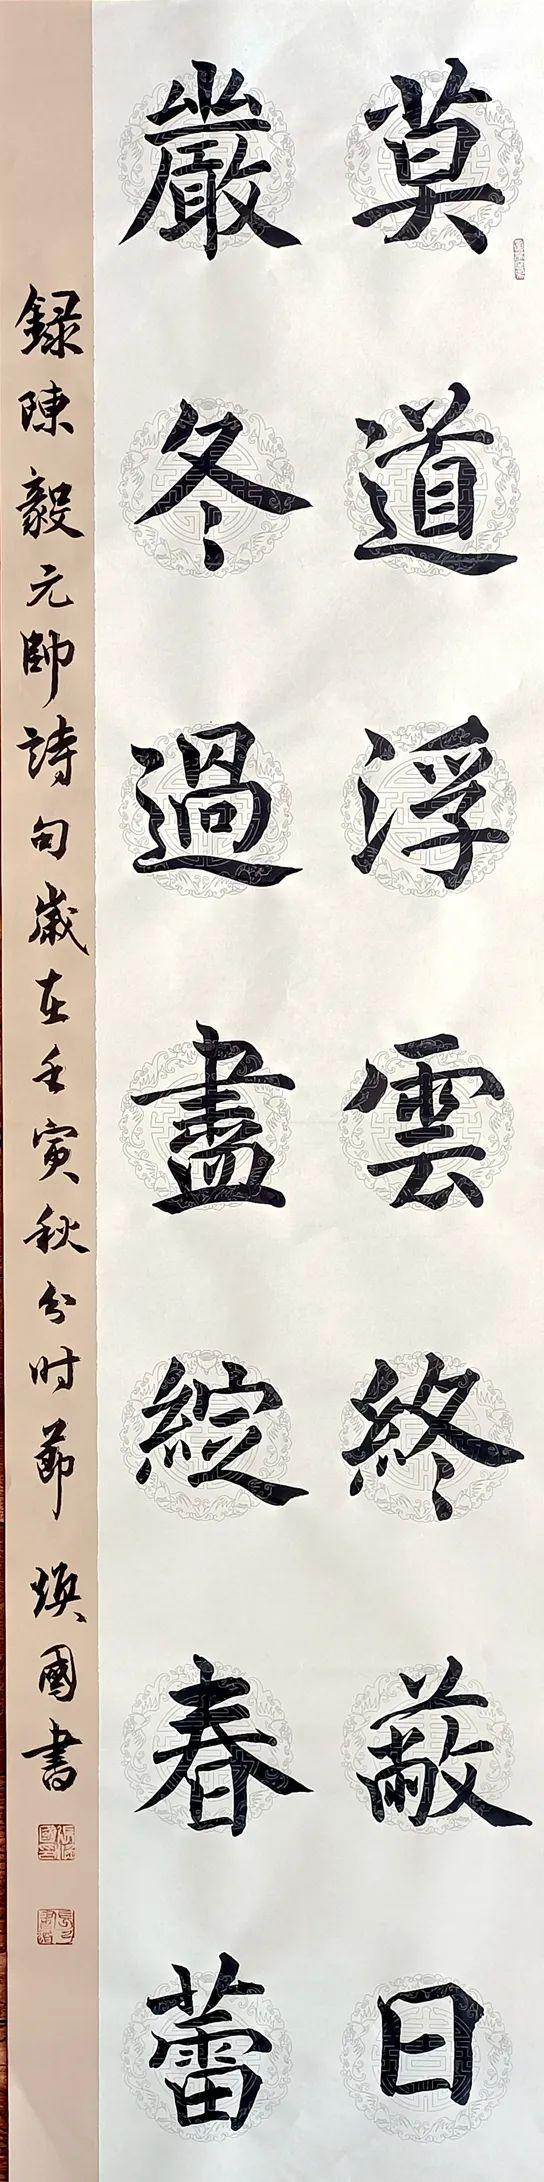 莫道浮雲終蔽日
嚴冬過盡綻春蕾
録陳毅元帥詩句歲在壬寅秋分时節 煥國書